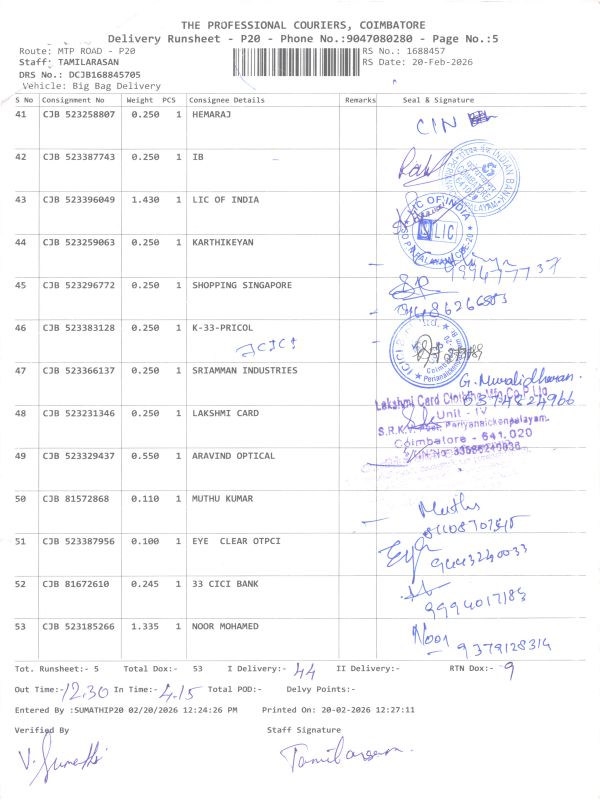 THE PROFESSIONAL COURIERS, COIMBATORE
Delivery Runsheet - P20 - Phone No.:9047080280 - Page No.:5
Route: MTP ROAD - P20 RS No.: 1688457
Staff: TAMILARASAN RS Date: 20-Feb-2026
DRS No.: DCJB168845705
Vehicle: Big Bag Delivery
S No Consignment No Weight PCS Consignee Details Remarks Seal & Signature
41 CJB 523258807 0.250 1 HEMARAJ
CIN
42 CJB 523387743 0.250 1 IB
INDIAN BANK
43 CJB 523396049 1.430 1 LIC OF INDIA
LIC OF INDIA
LIC
44 CJB 523259063 0.250 1 KARTHIKEYAN
45 CJB 523296772 0.250 1 SHOPPING SINGAPORE
46 CJB 523383128 0.250 1 K-33-PRICOL
ICICI
47 CJB 523366137 0.250 1 SRIAMMAN INDUSTRIES
G. Muralidharan
48 CJB 523231346 0.250 1 LAKSHMI CARD
Lakshmi Card Clothing
Unit - IV
S.R.K.V. Post, Periyanaickenpalayam,
Coimbatore - 641 020
49 CJB 523329437 0.550 1 ARAVIND OPTICAL
50 CJB 81572868 0.110 1 MUTHU KUMAR
Muthu
51 CJB 523387956 0.100 1 EYE CLEAR OTPCI
9443240033
52 CJB 81672610 0.245 1 33 CICI BANK
9994017183
53 CJB 523185266 1.335 1 NOOR MOHAMED
Noor
9379128314
Tot. Runsheet:- 5 Total Dox:- 53 I Delivery:- 44 II Delivery:- RTN Dox:- 9
Out Time:- 12.30 In Time:- 4.15 Total POD:- Delvy Points:-
Entered By :SUMATHIP20 02/20/2026 12:24:26 PM Printed On: 20-02-2026 12:27:11
Verified By Staff Signature
V. Sumathi Tamilarasan